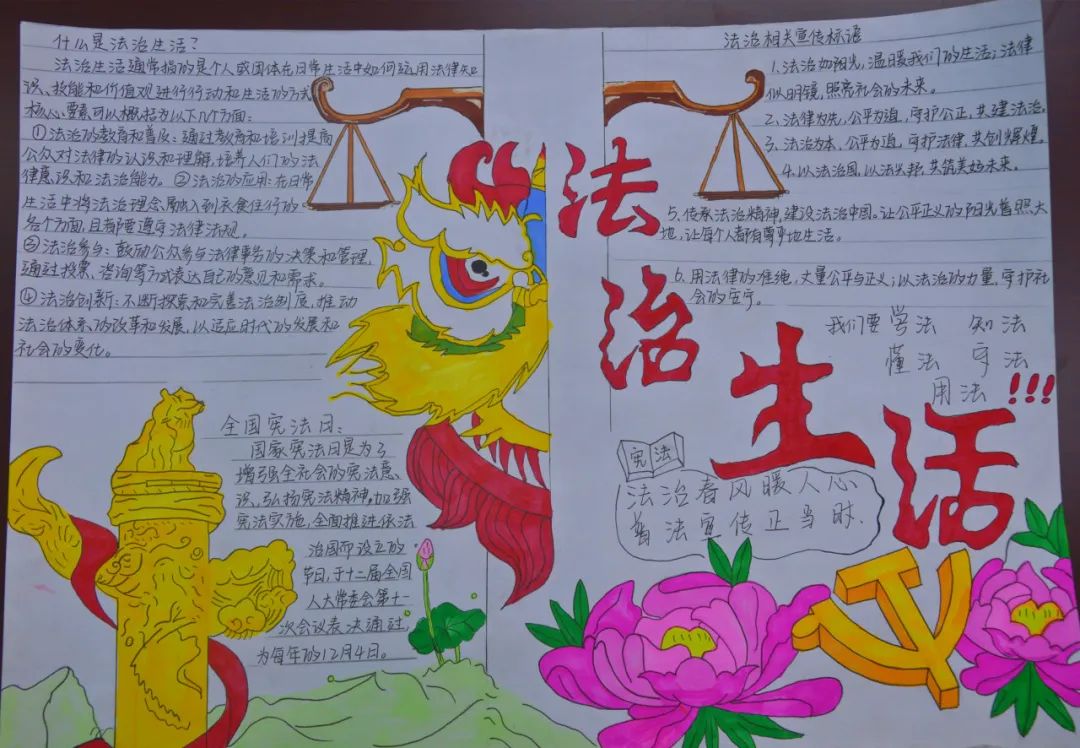 什么是法治生活？
法治生活通常指的是个人或团体在日常生活中如何运用法律知
识、技能和价值观进行行动和生活的方式
核心要素可以概括为以下几个方面：
①法治的教育和普及：通过教育和培训提高
公众对法律的认识和理解，培养人们的法
律意识和法治能力。②法治的应用：在日常
生活中将法治理念融入到衣食住行的
各个方面，且都要遵守法律法规。
③法治参与：鼓励公众参与法律事务的决策和管理，
通过投票、咨询等方式表达自己的意见和需求。
④法治创新：不断探索和完善法治制度，推动
法治体系的改革和发展，以适应时代的发展和
社会的变化。
全国宪法日：
国家宪法日是为了
增强全社会的宪法意
识，弘扬宪法精神，加强
宪法实施，全面推进依法
治国而设立的
节日，于十二届全国
人大常委会第十一
次会议表决通过，
为每年的12月4日。
法治相关宣传标语
1.法治如阳光，温暖我们的生活；法律
似明镜，照亮社会的未来。
2.法律为先，公平为道，守护公正，共建法治。
3.法治为本，公平为道，守护法律，共创辉煌。
4.以法治国，以法兴邦，共筑美好未来。
5.传承法治精神，建设法治中国。让公平正义的阳光普照大
地，让每个人都有尊严地生活。
6.用法律的准绳，丈量公平与正义；以法治的力量，守护社
会的安宁。
我们要 学法 知法
懂法 守法
用法!!!
法治生活
宪法
法治春风暖人心
普法宣传正当时.